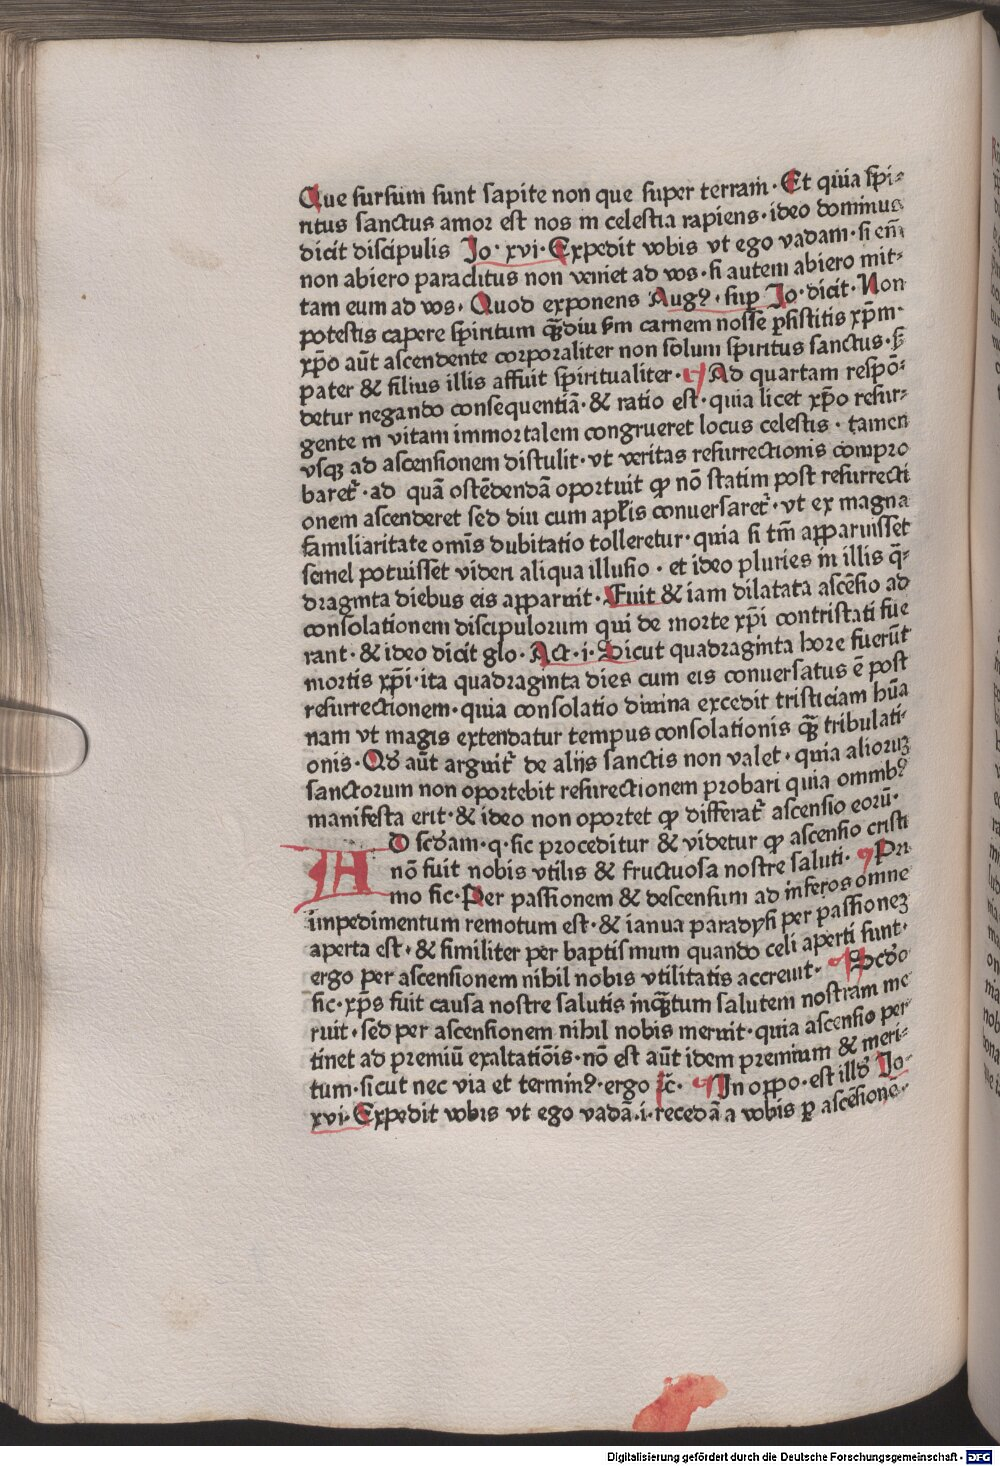 Que sursum sunt sapite non que super terram· Et quia spi-
ritus sanctus amor est nos in celestia rapiens· ideo dominus
dicit discipulis Jo· xvi· Expedit vobis vt ego vadam· si em̄
non abiero paraclitus non veniet ad vos· si autem abiero mit-
tam eum ad vos· Quod exponens Augꝰ· suꝑ Jo· dicit· Non
potestis capere spiritum qꝫdiu ẜm carnem nosse ꝑsistitis xp̄m·
xp̄o aūt ascendente corporaliter non solum spiritus sanctus· ẜ
pater & filius illis affuit spiritualiter· Ad quartam respō-
detur negando consequentiā· & ratio est· quia licet xp̄o resur-
gente in vitam immortalem congrueret locus celestis· tamen
vsqꝫ ad ascensionem distulit· vt veritas resurrectionis compro
baret̃· ad quā ostēdendā oportuit ꝙ nō statim post resurrecti
onem ascenderet sed diu cum apl̄is conuersaret̃· vt ex magna
familiaritate omīs dubitatio tolleretur· quia si tm̄ apparuisset
semel potuisset videri aliqua illusio· et ideo pluries in illis q̄-
draginta diebus eis apparuit· Fuit & iam dilatata ascēsio ad
consolationem discipulorum qui de morte xp̄i contristati fue
rant· & ideo dicit glo· Act· i· Sicut quadraginta hore fuerūt
mortis xp̄i· ita quadraginta dies cum eis conuersatus ē post
resurrectionem· quia consolatio diuina excedit tristiciam hūa
nam vt magis extendatur tempus consolationis qꝫ tribulati-
onis· Qd̛ aūt arguit̃ de alijs sanctis non valet· quia alioruꝫ
sanctorum non oportebit resurectionem probari quia omnibꝰ
manifesta erit· & ideo non oportet ꝙ differat̃ ascensio eorū·
AD scd̛am· q· sic proceditur & videtur ꝙ ascensio cristi
nō fuit nobis vtilis & fructuosa nostre saluti· Pri
mo sic· Per passionem & descensum ad inferos omne
impedimentum remotum est· & ianua paradysi per passioneꝫ
aperta est· & similiter per baptismum quando celi aperti sunt·
ergo per ascensionem nihil nobis vtilitatis accreuit· Scd̛o
sic· xp̄s fuit causa nostre salutis inqꝫtum salutem nostram me
ruit· sed per ascensionem nihil nobis meruit· quia ascensio per
tinet ad premiū exaltatiōis· nō est aūt idem premium & meri-
tum· sicut nec via et terminꝰ· ergo ⁊c̄· In oppo· est illd̛ Jo-
xvi· Expedit vobis vt ego vadā· i· recedā a vobis ꝑ ascēsionē·
Digitalisierung gefördert durch die Deutsche Forschungsgemeinschaft - DFG